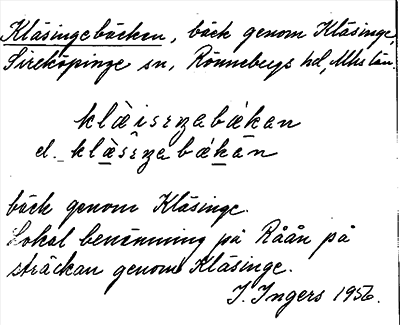 Kläsingebäcken, bäck genom Kläsinge,
Sireköpinge sn, Rönnebergs hd, Mlhs län.
klὰisiŋabǽkan
el. klὰ̱sîŋa bǽḵān
bäck genom Kläsinge.
Lokal benämning på Råån på
sträckan genom Kläsinge.
J. Ingers 1956.